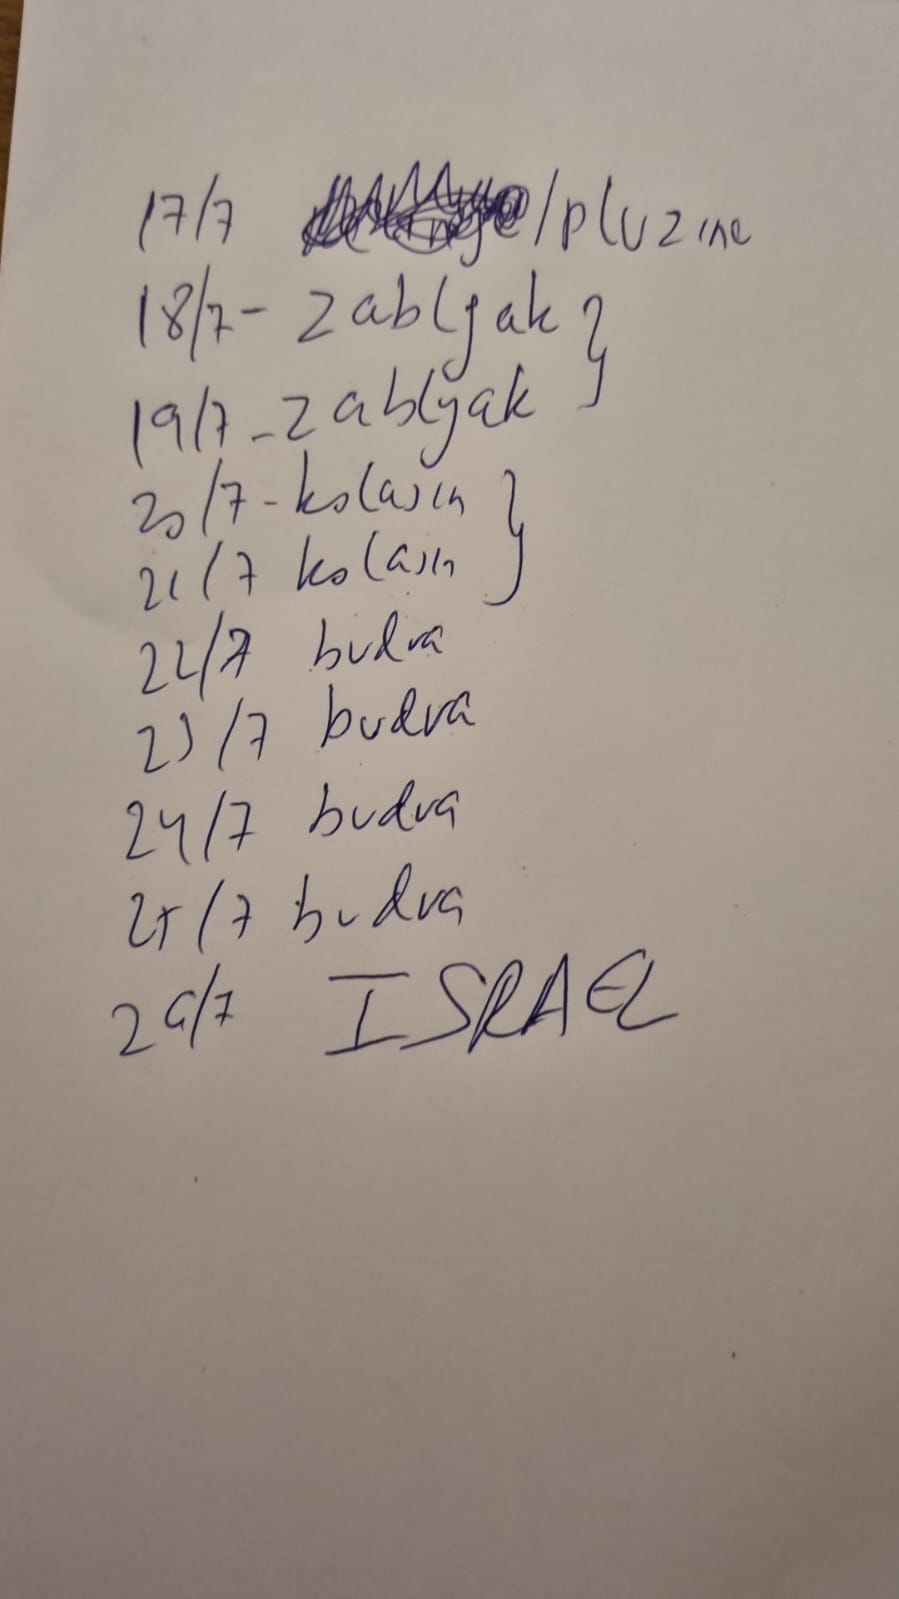 17/7 /pluzine
18/7- zabljak }
19/7-zabljak
20/7-kolasin }
21/7 kolasin
22/7 budva
23/7 budva
24/7 budva
25/7 budva
26/7 ISRAEL